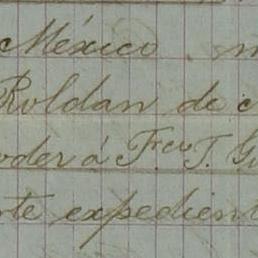 México
Roldan de
oder á Frco T. G
te expedient